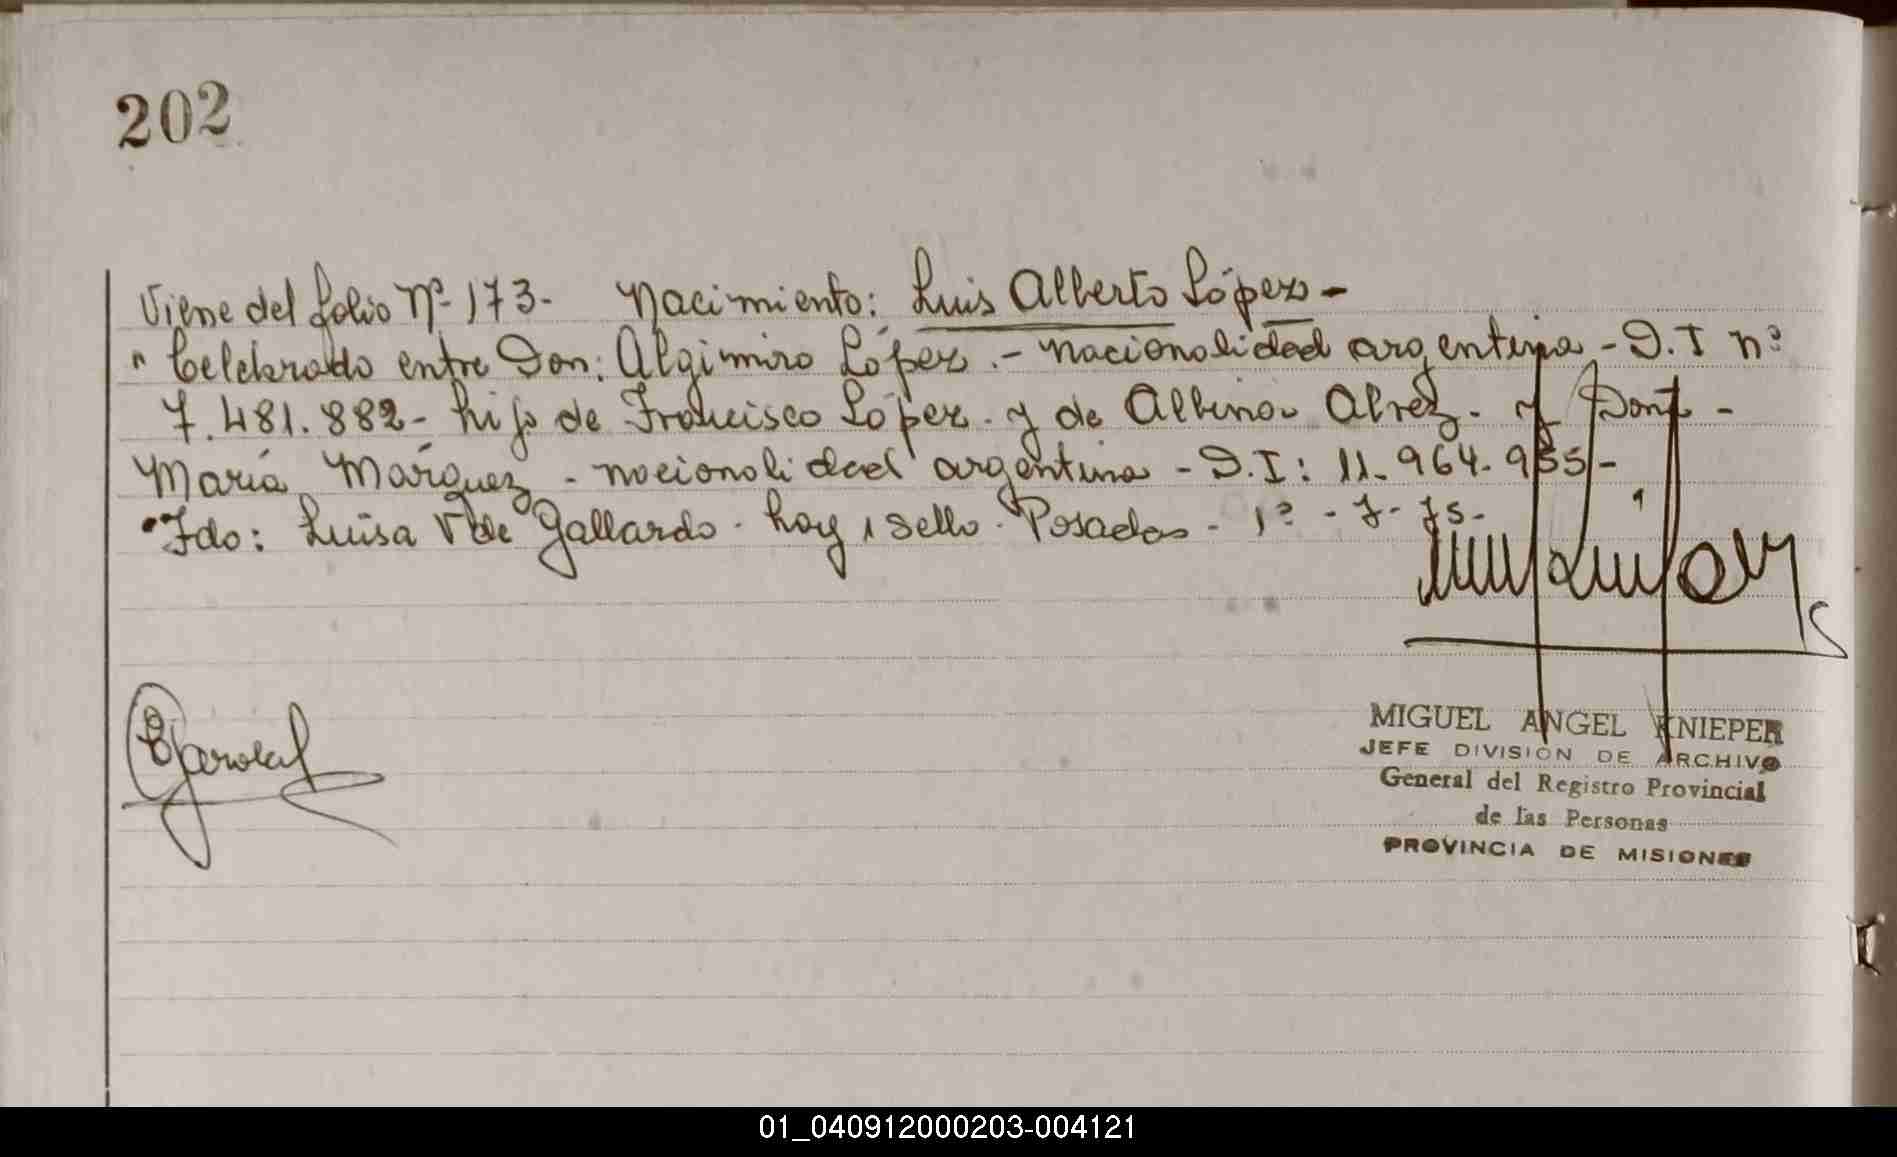 202
Viene del folio Nº 173- Nacimiento: Luis Alberto López -
" Celebrado entre Don: Algimiro López .- nacionalidad argentina - D.I nº
7.481.882- hijo de Francisco López. y de Albina Alvez. y Doña -
María Márquez - nacionalidad argentina - D.I: 11.964.955 -
"Fdo: Luisa V de Gallardo. hay 1 sello. Posadas - 1º - 7 - 75 -
MIGUEL ANGEL KNIEPER
JEFE DIVISION DE ARCHIVO
General del Registro Provincial
de las Personas
PROVINCIA DE MISIONES
01_040912000203-004121